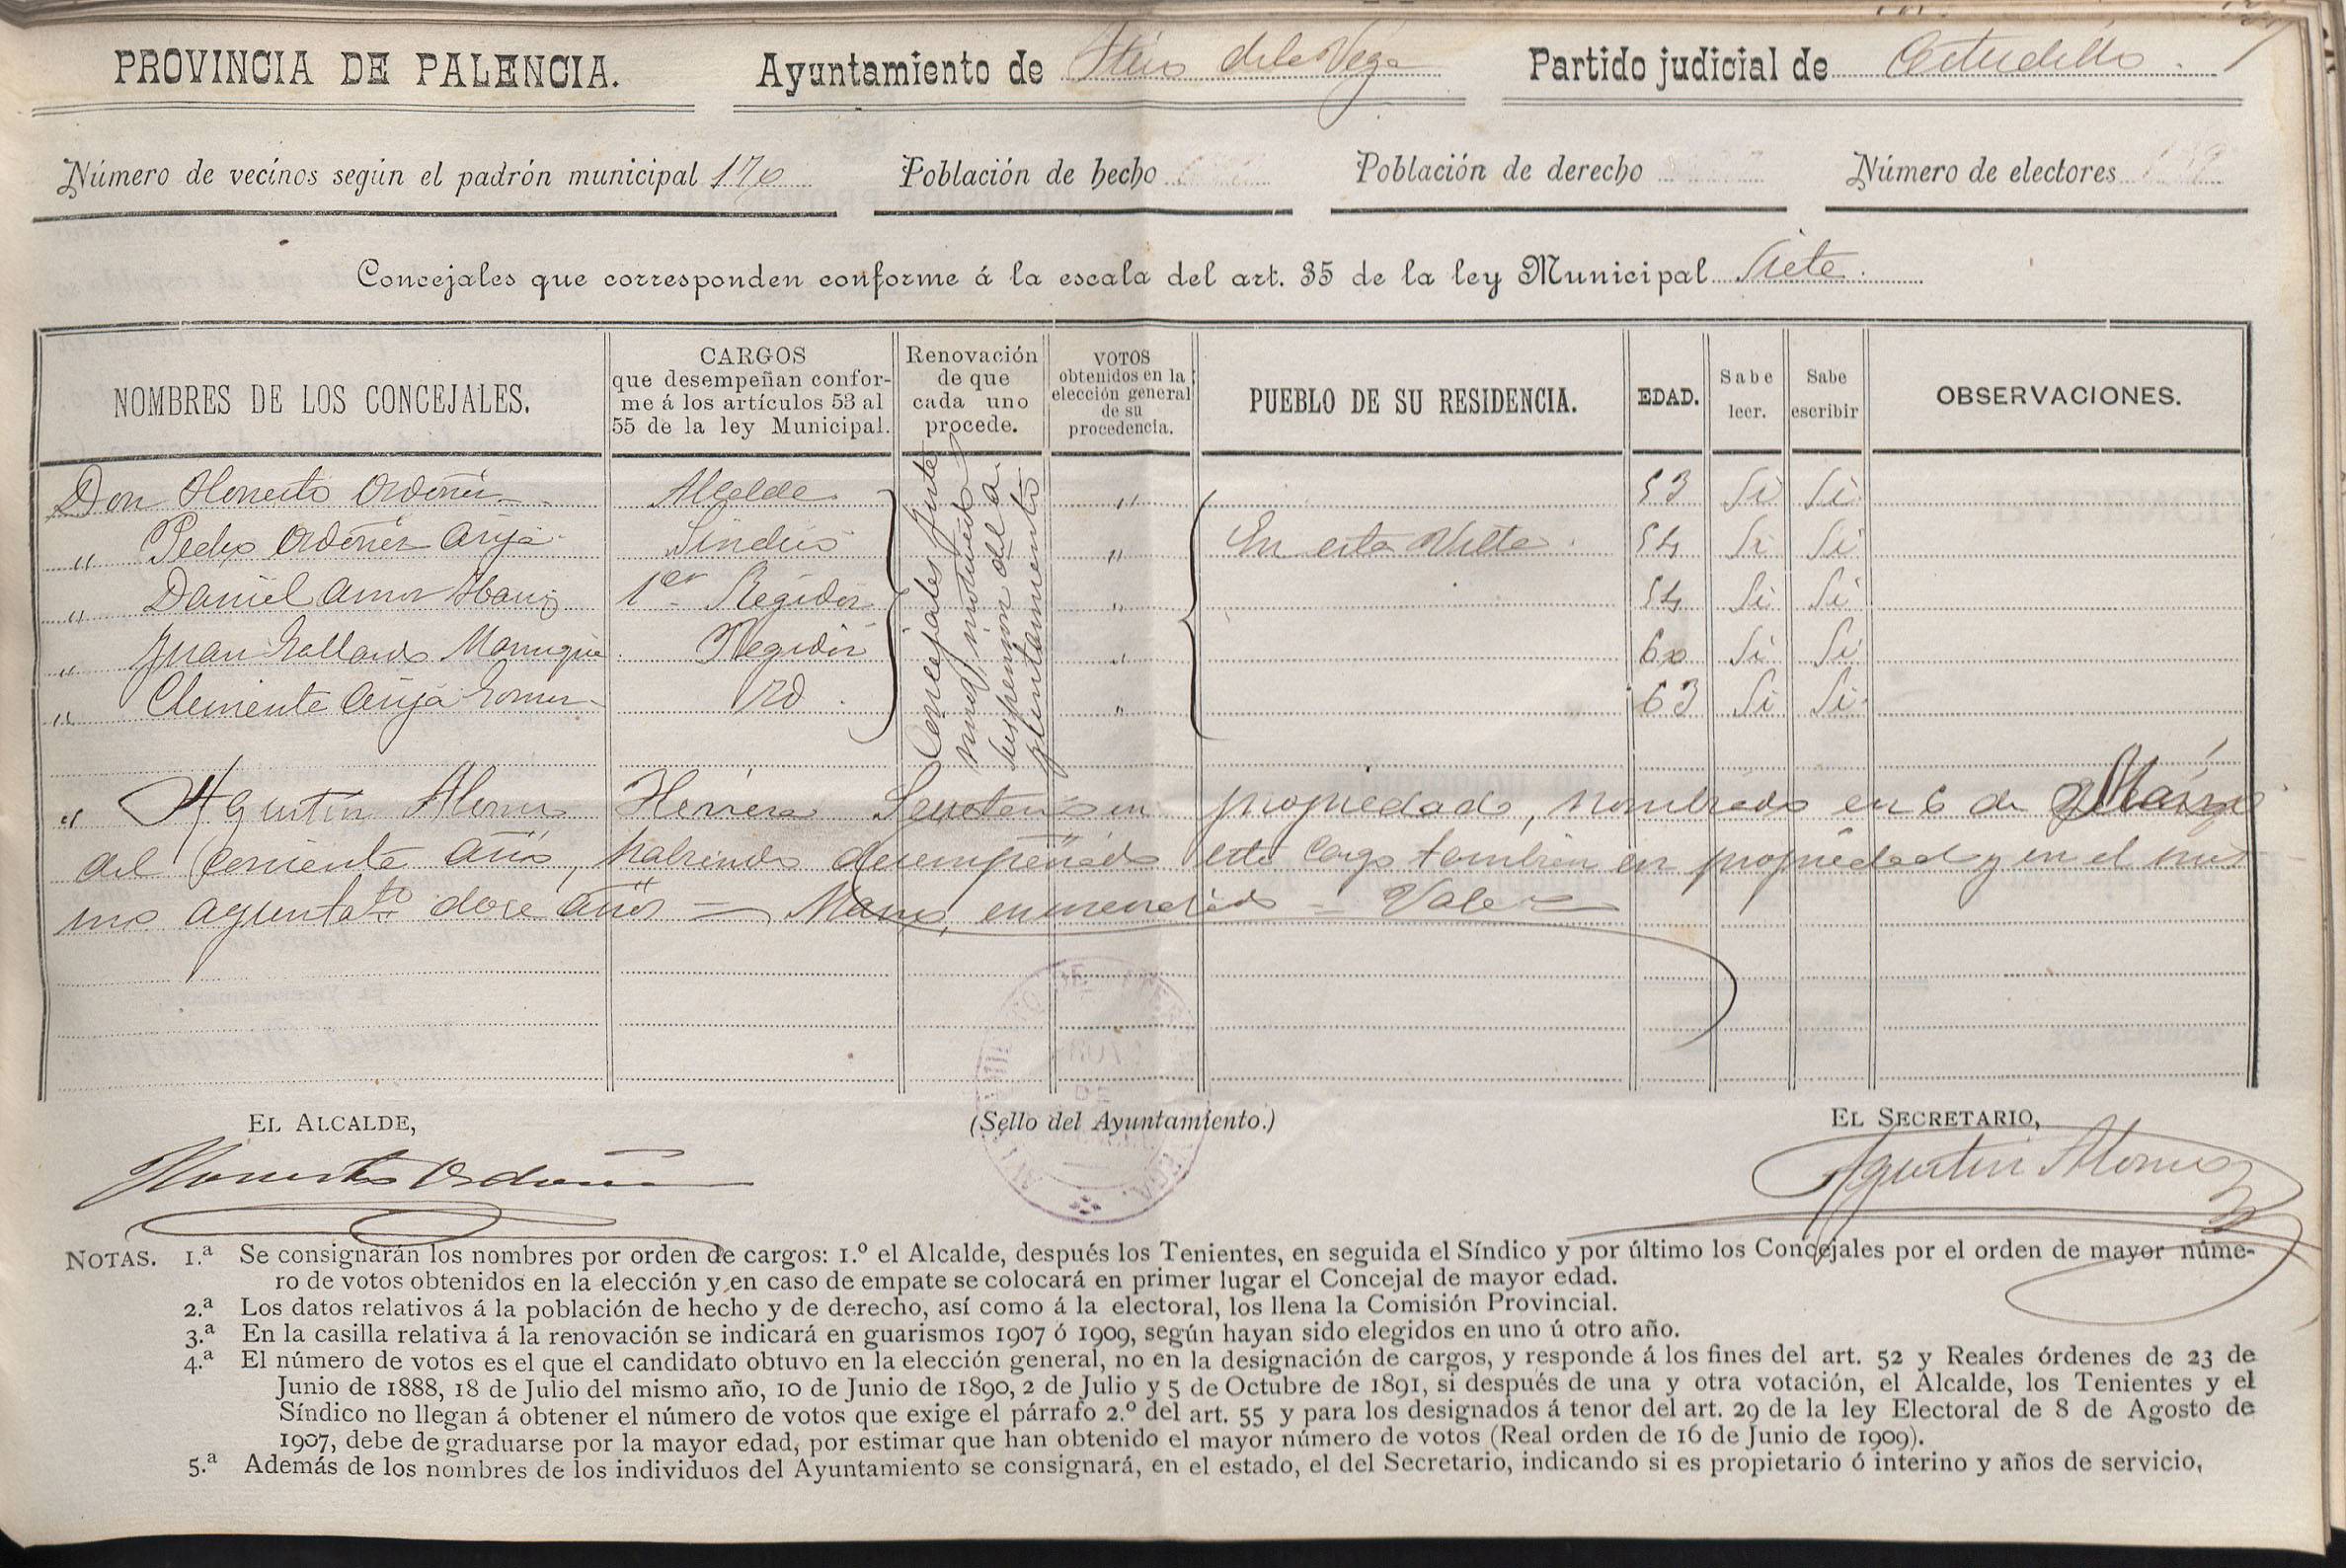 PROVINCIA DE PALENCIA. Ayuntamiento de Itero de la Vega Partido judicial de Astudillo.
Número de vecinos según el padrón municipal 170 Población de hecho Población de derecho Número de electores 139
Concejales que corresponden conforme á la escala del art. 35 de la ley Municipal Siete.
NOMBRES DE LOS CONCEJALES.
CARGOS
que desempeñan confor-
me á los artículos 53 al
55 de la ley Municipal.
Renovación
de que
cada uno
procede.
VOTOS
obtenidos en la
elección general
de su
procedencia.
PUEBLO DE SU RESIDENCIA.
EDAD.
Sabe
leer.
Sabe
escribir
OBSERVACIONES.
Don Honesto Ordóñez Alcalde " 53 Si Si
" Pedro Ordoñez Arija Síndico " En esta Villa. 54 Si Si
" Daniel Amor 1er Regidor " 54 Si Si
" Juan Gallardo Manrique Regidor " 60 Si Si
" Clemente Arija Gomez Id " 63 Si Si
Concejales Inte
rinos, motivado
suspension del a
yuntamiento
" Agustin Alonso Herrera Secretario en propiedad, nombrado en 6 de Marzo
del corriente año, habiendo desempeñado este cargo tambien en propiedad y en el mis
mo ayuntato doce años = Marzo, enmendado = Vale =
EL ALCALDE,
(Sello del Ayuntamiento.)
EL SECRETARIO,
Honesto Ordóñez
Agustin Alonso
NOTAS. 1.ª Se consignarán los nombres por orden de cargos: 1.º el Alcalde, después los Tenientes, en seguida el Síndico y por último los Concejales por el orden de mayor núme-
ro de votos obtenidos en la elección y en caso de empate se colocará en primer lugar el Concejal de mayor edad.
2.ª Los datos relativos á la población de hecho y de derecho, así como á la electoral, los llena la Comisión Provincial.
3.ª En la casilla relativa á la renovación se indicará en guarismos 1907 ó 1909, según hayan sido elegidos en uno ú otro año.
4.ª El número de votos es el que el candidato obtuvo en la elección general, no en la designación de cargos, y responde á los fines del art. 52 y Reales órdenes de 23 de
Junio de 1888, 18 de Julio del mismo año, 10 de Junio de 1890, 2 de Julio y 5 de Octubre de 1891, si después de una y otra votación, el Alcalde, los Tenientes y el
Síndico no llegan á obtener el número de votos que exige el párrafo 2.º del art. 55 y para los designados á tenor del art. 29 de la ley Electoral de 8 de Agosto de
1907, debe de graduarse por la mayor edad, por estimar que han obtenido el mayor número de votos (Real orden de 16 de Junio de 1909).
5.ª Además de los nombres de los individuos del Ayuntamiento se consignará, en el estado, el del Secretario, indicando si es propietario ó interino y años de servicio,